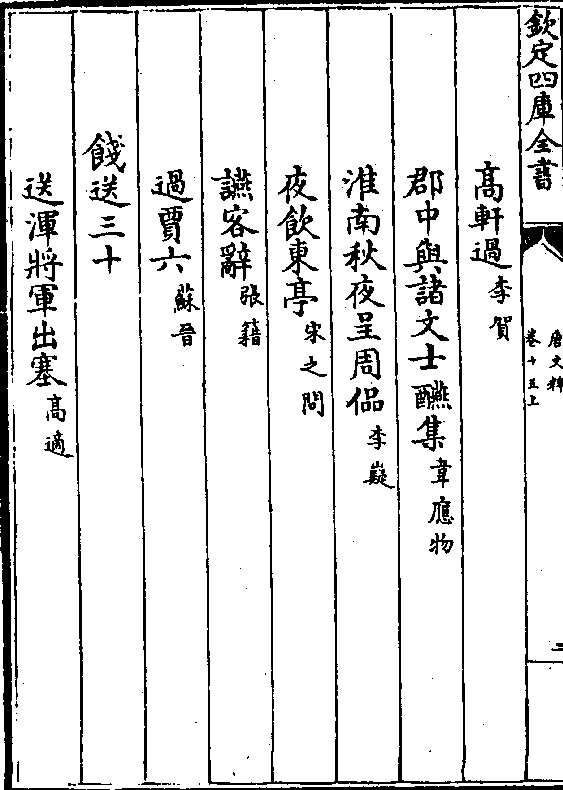 欽定四庫全書
唐文粹
卷十五上
二
高軒過李賀
郡中與諸文士醼集韋應物
淮南秋夜呈周侣李嶷
夜飲東亭宋之問
讌客辭張籍
過賈六蘇晋
餞送三十
送渾將軍出塞高適